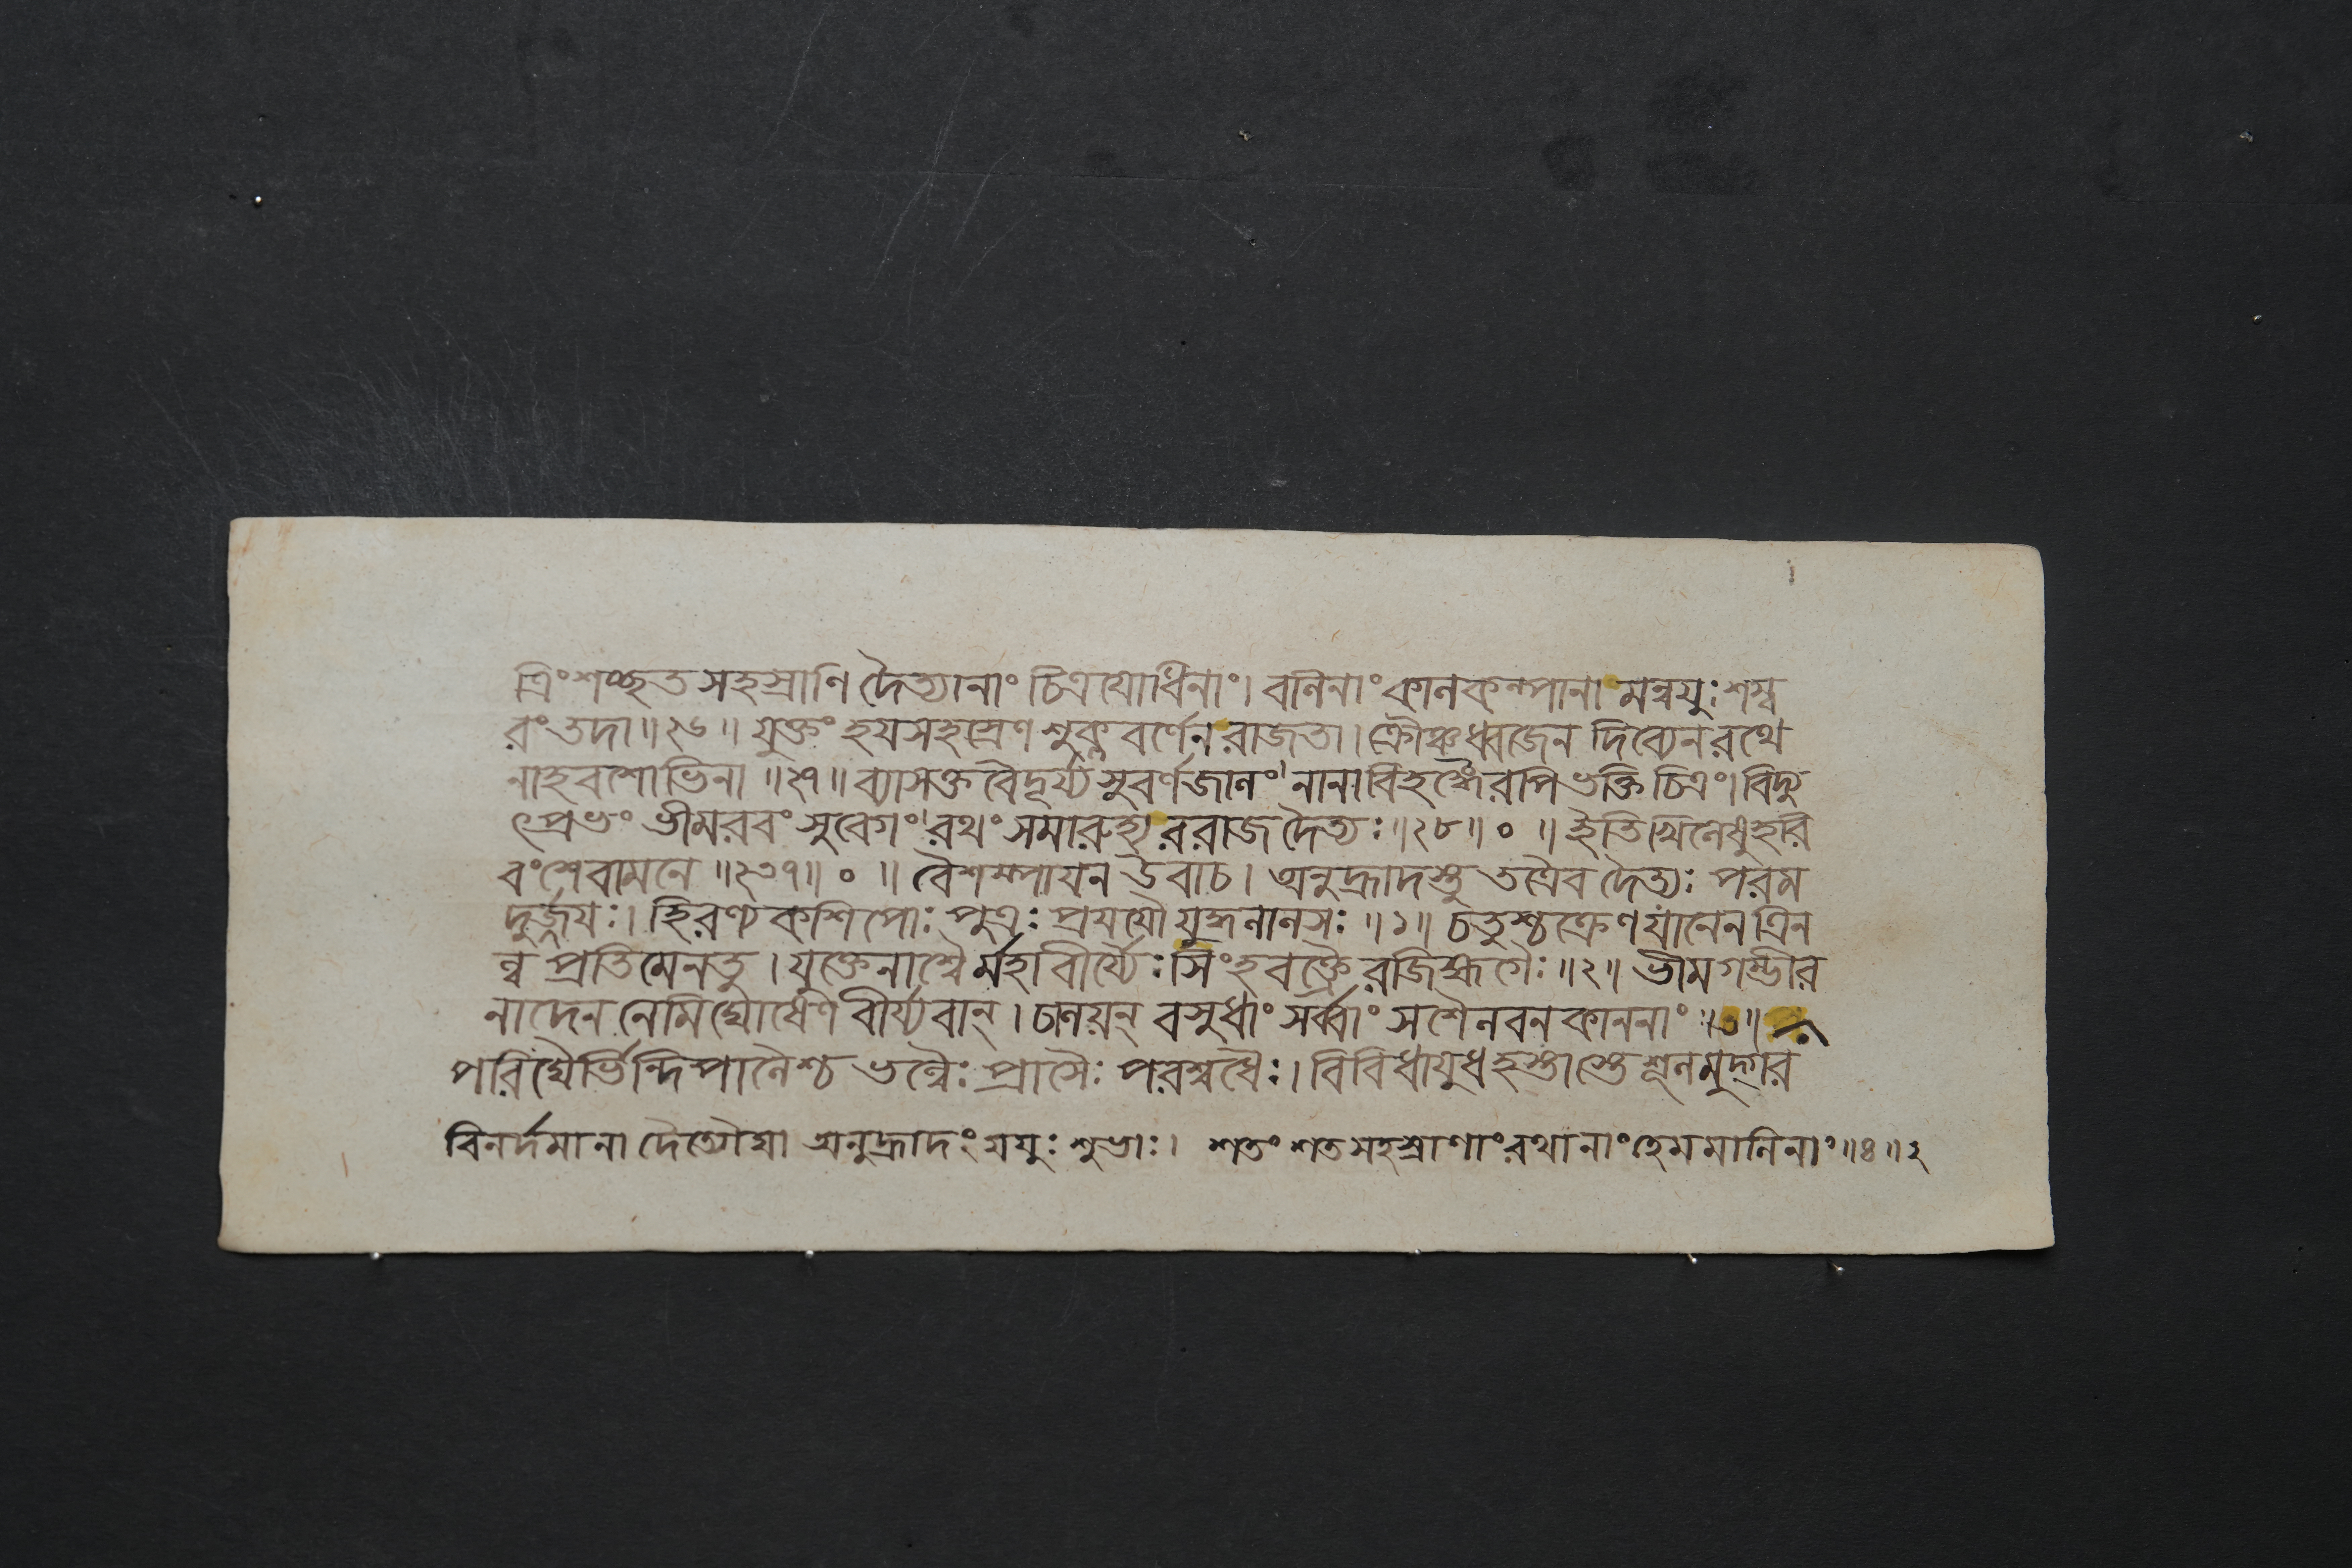 ত্রিংশচ্ছতসহস্রাণি দৈত্যানাং চিত্রযোধিনাং। বলিনাং কালকল্পানা মন্বযুঃ শম্ব
রং তদা॥২৬॥ যুক্তং হযসহস্রেণ শুক্লবর্ণেন রাজতা। ক্রৌঞ্চধ্বজেন দিব্যেন রথে
নাহবশোভিনা॥২৭॥ ব্যাসক্তবৈদূর্য্যসুবর্ণজালং। নানাবিহঙ্গৈরপি ভক্তিচিত্রং। বিদ্যু
ৎপ্রভং ভীমরবং সুবেগং। রথং সমারুহ্য ররাজ দৈত্যঃ॥২৮॥ ০ ॥ ইতি খিলেষু হরি
বংশে বামনে॥২৩৭॥ ০ ॥ বৈশম্পাযন উবাচ। অনুহ্রাদস্তু তত্রৈব দৈত্যঃ পরম
দুর্জ্জযঃ। হিরণ্যকশিপোঃ পুত্রঃ প্রযযৌ যুদ্ধলালসঃ॥১॥ চতুশ্চক্রেণ যানেন ত্রিন
ল্ব প্রতিমেন তু। যুক্তেনাশ্বৈর্মহাবীর্য্যৈঃ সিংহবক্ত্রৈরজিহ্মগৈঃ॥২॥ ভীমগম্ভীর
নাদেন নেমিঘোষেণ বীর্য্যবান্। চালয়ন্ বসুধাং সর্ব্বাং সশৈলবনকাননাং॥৩॥
পরিঘৈর্ভিন্দিপালৈশ্চ ভল্লৈঃ প্রাসৈঃ পরশ্বধৈঃ। বিবিধাযুধহস্তাস্তে শূলমুদ্গর
বিনর্দমানা দৈত্যৌঘা অনুহ্রাদং যযুঃ শুভাঃ। শতং শতসহস্রাণাং রথানাং হেমমালিনাং॥৪॥২